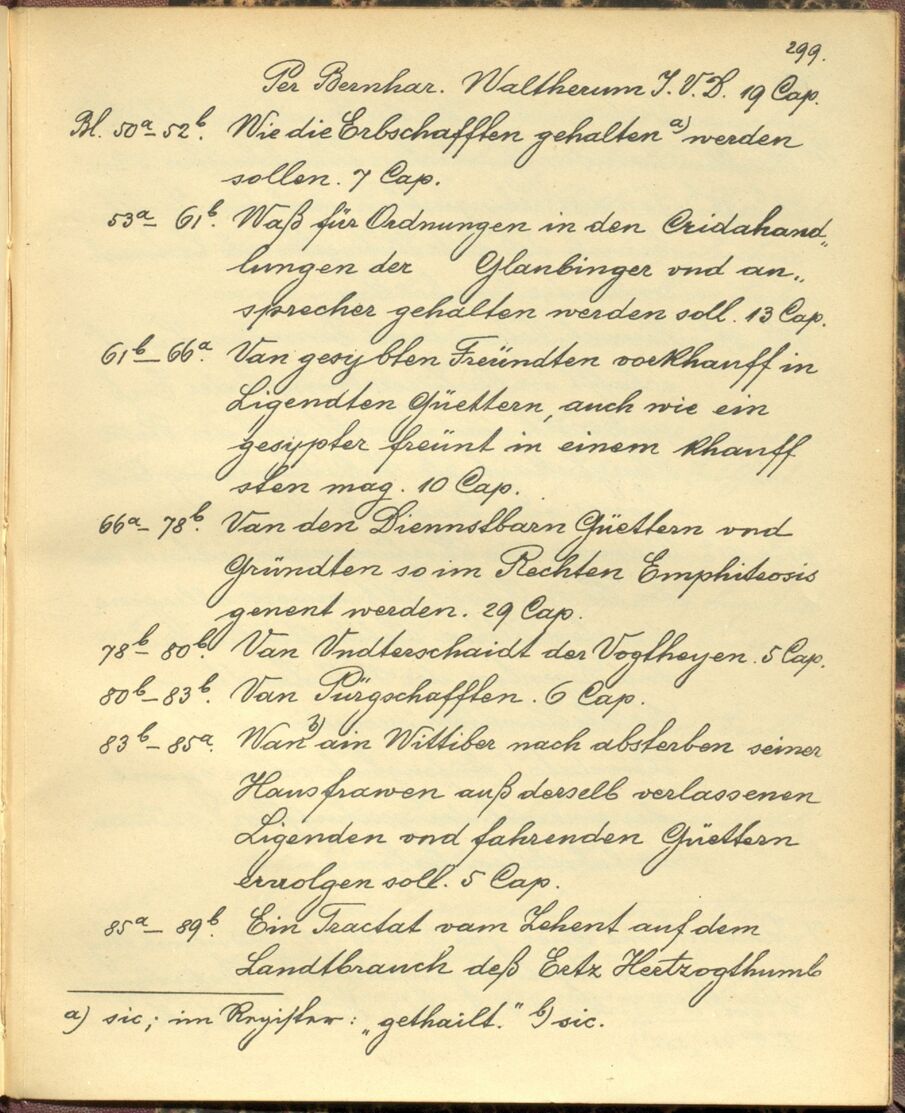 299.
Per Bernhar. Waltherum J. V. D. 19 Cap.
Bl. 50a – 52b. Wie die Erbschafften gehalten a) werden
sollen. 7 Cap.
53a – 61b. Waß für Ordnungen in den Cridahand„
lungen der Glaubinger vnd an„
sprecher gehalten werden soll. 13 Cap.
61b – 66a. Van gesybten Freündten vorkhauff in
Ligendten Güettern, auch wie ein
gesippter freünt in einem khauff
sten mag. 10 Cap.
66a – 78b. Van den Diennstbarn Güettern vnd
Gründten so im Rechten Emphiteosis
genent werden. 29 Cap.
78b – 80b. Van Vndterschaidt der Vogtheyen. 5 Cap.
80b – 83b. Van Pürgschafften. 6 Cap.
83b – 85a. Wan b) ain Wittiber nach absterben seiner
Hausfrawen auß derselb verlassenen
Ligenden vnd fahrenden Güettern
ervolgen soll. 5 Cap.
85a – 89b. Ein Tractat vam Zehent auf dem
Landtbrauch deß Ertz Hertzogthumb
a) sic; im Register: „gethailt.“ b) sic.